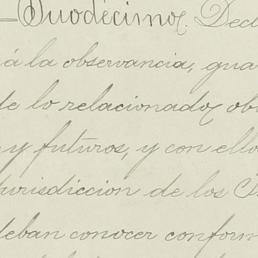 Duodécimo. Decl
á la observancia, gua
de lo relacionado, ob
y futuros, y con ello
jurisdiccion de los
deban conocer conform